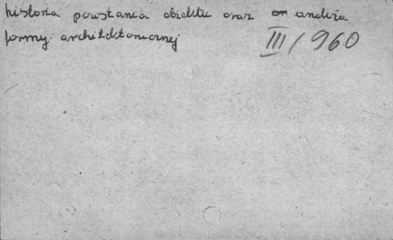 historia powstania obiektu oraz analiza
formy architektonicznej III/960